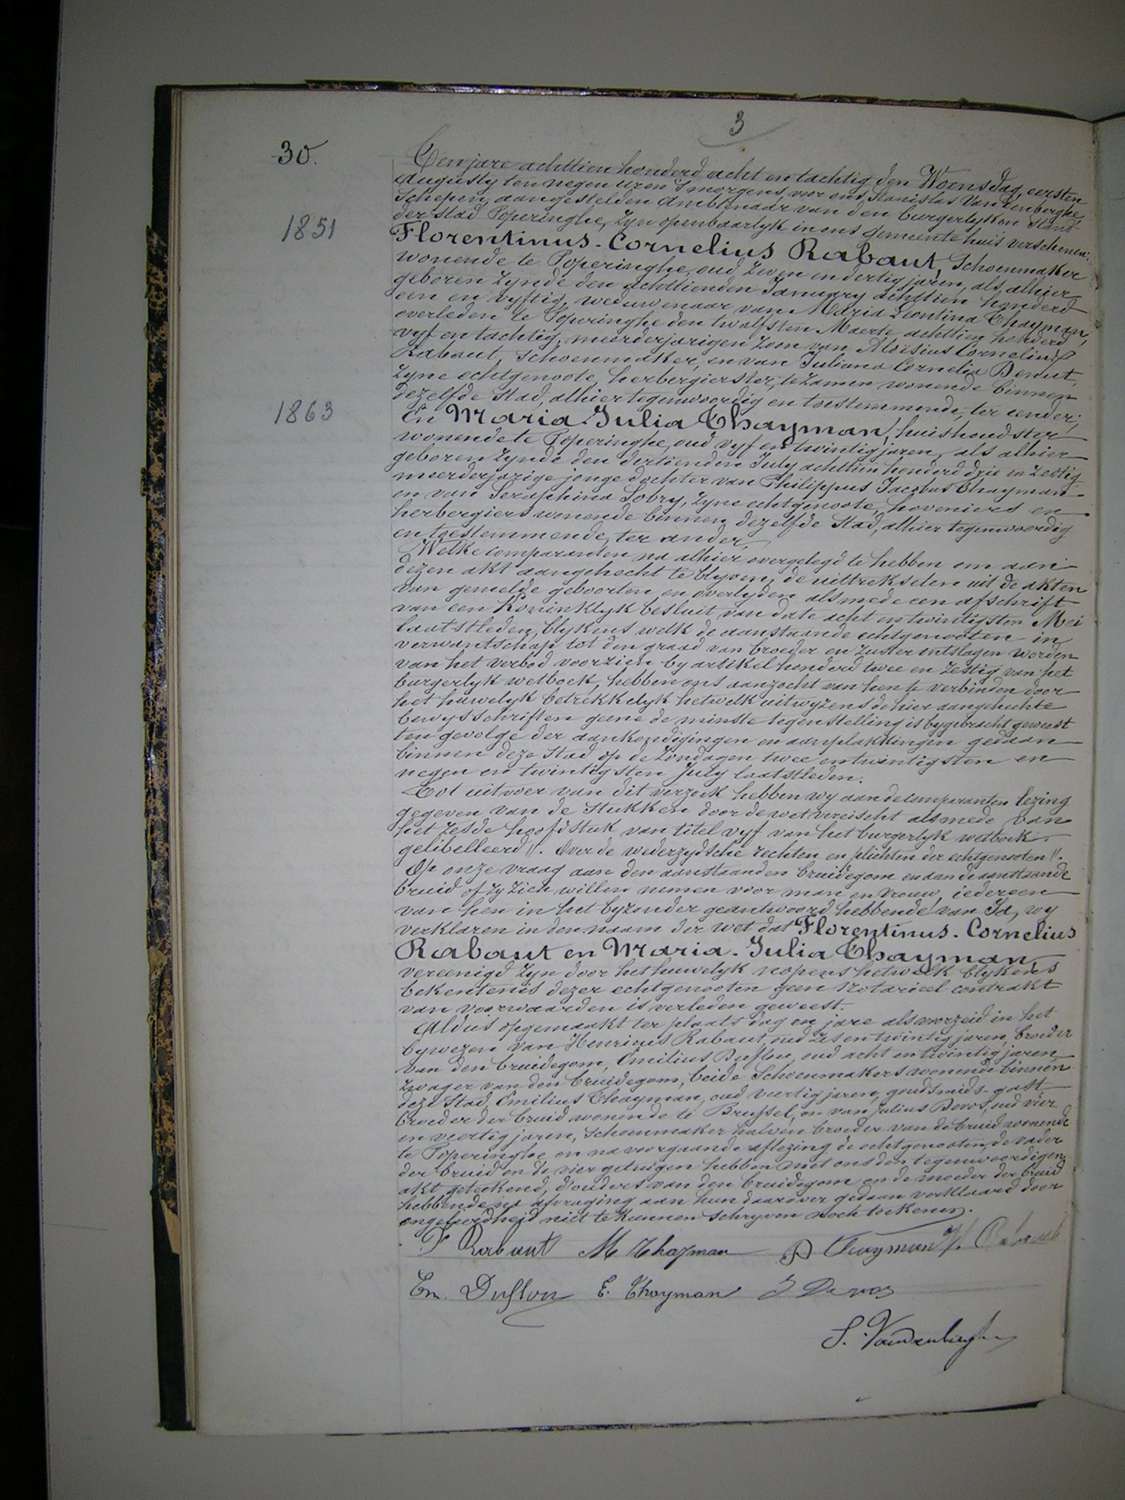 3
30.
Ten jare achttien honderd acht en tachtig den Woensdag, eersten
Augusty ten negen uren 's morgens, voor ons, Stanislas Van Renberghe,
Schepen, aangestelden ambtenaar van den burgerlyken stand
der stad Poperinghe, zyn openbaarlyk in ons gemeentehuis verschenen:
1851
Florentinus-Cornelius Rabaut, Schoenmaker
wonende te Poperinghe, oud zeven en dertig jaren, als alhier
geboren zynde den achttienden January achttien honderd
een en vyftig, weduwenaar van Maria Leontina Thayman,
overleden te Poperinghe den twalfsten Maerte achttien honderd
vyf en tachtig, meerderjarigen zoon van Aloisius Cornelius
Rabaut, schoenmaker, en van Juliana Cornelia Denut,
zyne echtgenoote, herbergierster, tezamen wonende binnen
dezelfde stad, alhier tegenwoordig en toestemmende, ter eender;
1863
En Maria-Julia Thayman, huishoudster
wonende te Poperinghe, oud vyf en twintig jaren, als alhier
geboren zynde den dertienden July achttien honderd drie en zestig
meerderjarige jonge dochter van Philippus Jacobus Thayman
en van Seraphina Sobry, zyne echtgenoote, hoveniers en
herbergiers wonende binnen dezelfde stad, alhier tegenwoordig
en toestemmende, ter ander,
Welke comparanten na alhier overgelegd te hebben om aan
dezen akt aangehecht te blyven, de uittrekselen uit de akten
van gemelde geboorten en overlyden alsmede een afschrift
van een Koninklyk besluit van date acht en twintigsten Mei
laatstleden, blykens welk de aanstaande echtgenooten in
verwantschap tot den graad van broeder en zuster ontslagen worden
van het verbod voorzien by artikel honderd twee en zestig van het
burgerlyk wetboek, hebben ons aanzocht van hen te verbinden door
het huwelyk betrekkelyk hetwelk uitwyzens de hier aangehechte
bewysschriften geene de minste tegenstelling is bygebracht geweest
ten gevolge der aankondigingen en aanplakkingen gedaan
binnen deze stad op de Zondagen twee en twintigsten en
negen en twintigsten July laatstleden.
Tot uitvoer van dit verzoek hebben wy aan de comparanten lezing
gegeven van de stukken door de wet vereischt alsmede van
het zesde hoofdstuk van titel vyf van het burgerlyk wetboek
gelibelleerd ". Over de wederzydsche rechten en plichten der echtgenooten".
Op onze vraag aan den aanstaanden bruidegom en aan de aanstaande
bruid of zy zich willen nemen voor man en vrouw, iedereen
van hen in het byzonder geantwoord hebbende van Ja, wy
verklaren in den naam der wet dat Florentinus-Cornelius
Rabaut en Maria-Julia Thayman,
vereenigd zyn door het huwelyk nopens hetwelk blykens
bekentenis dezer echtgenooten geen notarieel contrakt
van voorwaarden is verleden geweest.
Aldus opgemaakt ter plaats dag en jare als voorzeid in het
bywezen van Henricus Rabaut, oud zes en twintig jaren, broeder
van den bruidegom, Emilius Duflou, oud acht en twintig jaren
zwager van den bruidegom, beide schoenmakers wonende binnen
deze stad, Emilius Thayman, oud veertig jaren, goudsmids-gast
broeder der bruid wonende te Brussel, en van Julius Devos, oud vier
en veertig jaren, schoenmaker halven broeder van de bruid wonende
te Poperinghe en na voorgaande aflezing de echtgenooten, de vader
der bruid en de vier getuigen hebben met ons den tegenwoordigen
akt geteekend, d'ouders van den bruidegom en de moeder der bruid
hebbende na afvraging aan hun daarover gedaan verklaard door
ongeleerdheid niet te kunnen schryven noch teekenen.
F Rabaut M Thayman P Thayman H. Rabaut
Em. Duflou E. Thayman J Devos
S. Vandenberghe